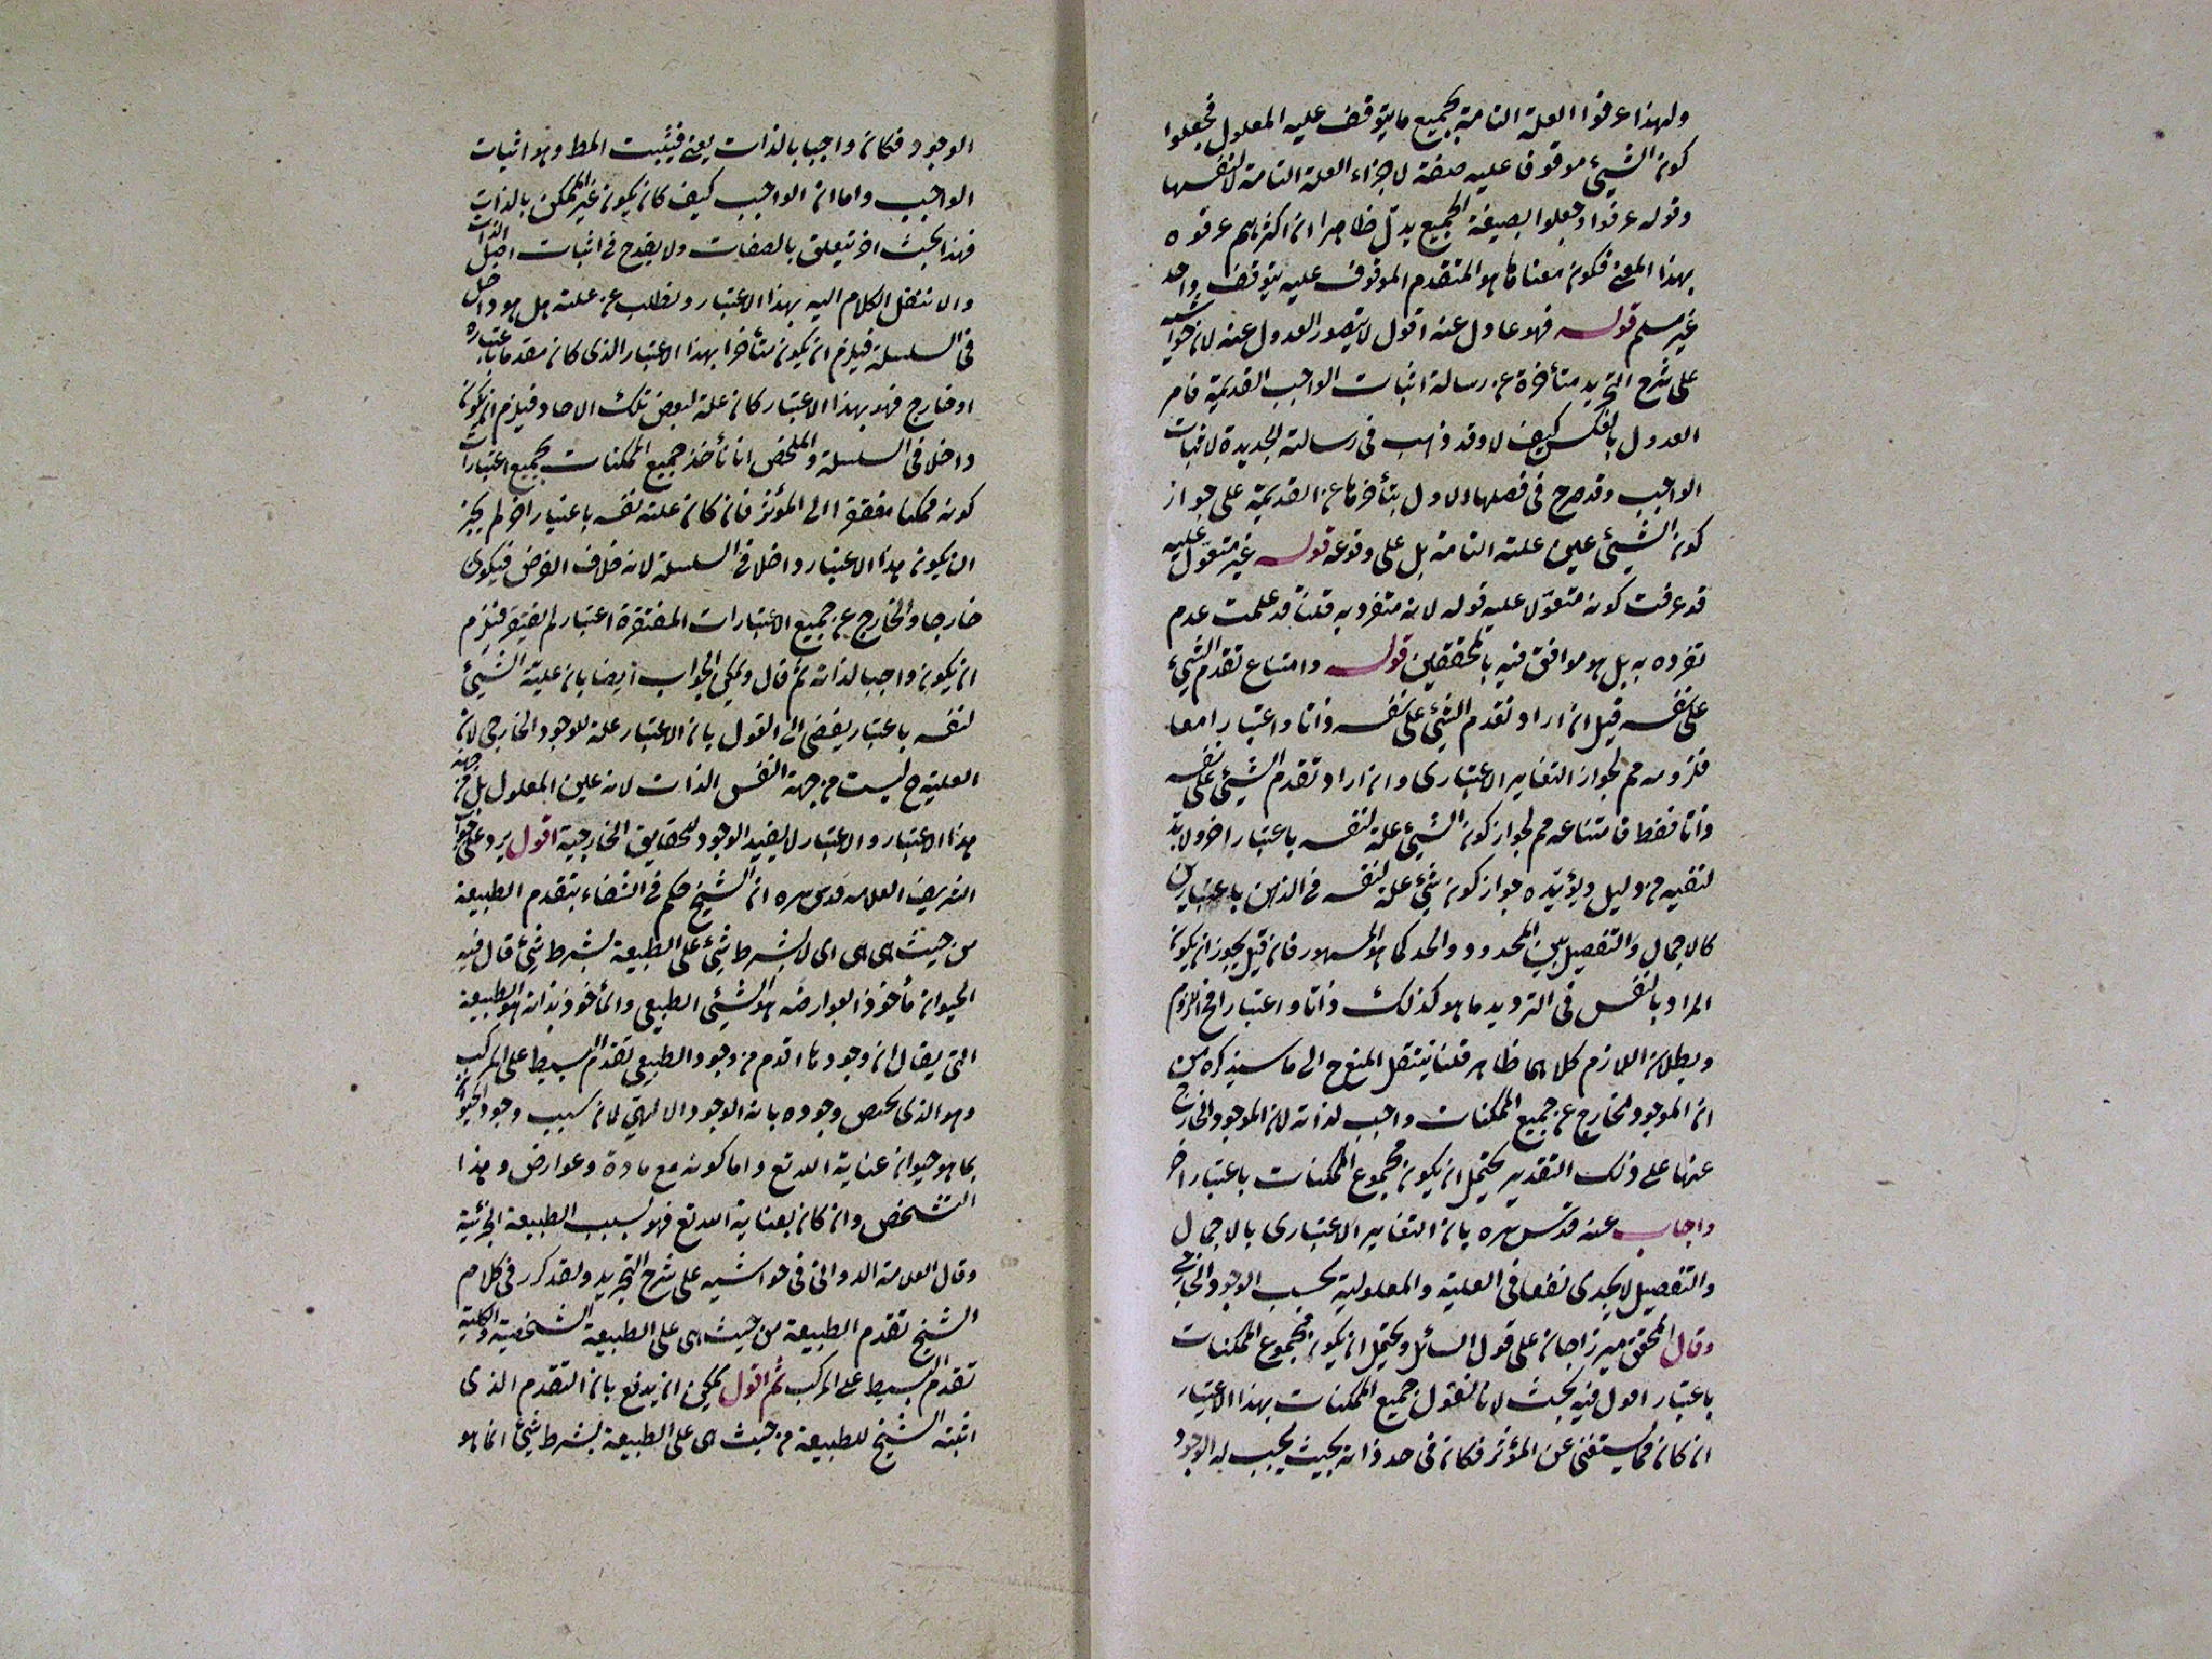 ولهذا عرفوا العلة التامة بجميع ما يتوقف عليه المعلول فجعلوا
كون الشيئ موقوفا عليه صفة لاجزاء العلة التامة لا لنفسها
وقوله عرفوا وجعلوا بصيغة الجمع يدل ظاهرا ان اكثرهم عرفوه
بهذا المعنى فكون معناها هو المتقدم الموقوف عليه بتوقف واحد
غير مسلم قوله فهو عادل عنه اقول لا يتصور العدول عنه لان حواشيه
على شرح التجريد متأخرة عن رسالة اثبات الواجب القديمة فامر
العدول بالعكس كيف لا وقد ذهب فى رسالته الجديدة لاثبات
الواجب وقد صرح فى فصلها الاول بتأخرها عن القديمة على جواز
كون الشيئ عين علته التامة بل على وقوعه قوله غير متعول عليه
قد عرفت كونه متعولا عليه قوله لانه متفرد به قلنا قد علمت عدم
تفرده به بل هو موافق فيه بالمحققين قوله وامتناع تقدم الشيئ
على نفسه قيل ان اراد تقدم الشيئ على نفسه ذاتا واعتبارا معا
فلزومه مم لجواز التغاير الاعتبارى وان اراد تقدم الشيئ على نفسه
ذاتا فقط فامتناعه مم لجواز كون الشيئ علة لنفسه باعتبار اخر ولا بد
لنفيه من دليل ويؤيده جواز كون شيئ علة لنفسه فى الذهن باعتبارين
كالاجمال والتفصيل بين المحدود والحد كما هو المشهور فان قيل يجوز ان يكون
المراد بالنفس فى الترديد ما هو كذلك ذاتا واعتبارا فح اللزوم
وبطلان اللازم كلاهما ظاهر قلنا ينتقل المنع ح الى ما سيذكره من
ان الموجود الخارج عن جميع الممكنات واجب لذاته لان الموجود الخارج
عنها على ذلك التقدير يحتمل ان يكون مجموع الممكنات باعتبار اخر
واجاب عنه قدس سره بان التغاير الاعتبارى بالاجمال
والتفصيل لا يجدى نفعا فى العلية والمعلولية بحسب الوجود الخارجى
وقال المحقق ميرزا جان على قول السائل ويحتمل ان يكون مجموع الممكنات
باعتبار اقول فيه بحث لانا نقول جميع الممكنات بهذا الاعتبار
ان كان مما يستغنى عن المؤثر فكان فى حد ذاته بحيث يجب له الوجود
الوجود فكان واجبا بالذات يعنى فيثبت المط وهو اثبات
الواجب واما ان الواجب كيف كان يكون غير الممكن بالذات
فهذا بحث اخر يتعلق بالصفات ولا يقدح فى اثبات اصل الذات
والا ننتقل الكلام اليه بهذا الاعتبار ونطلب عن علته هل هو داخل
فى السلسلة فيلزم ان يكون متأخرا بهذا الاعتبار الذى كان مقدما باعتباره
او خارج فهو بهذا الاعتبار كان علة لبعض تلك الاحاد فيلزم ان يكون
داخلا فى السلسلة والملخص انا نأخذ جميع الممكنات بجميع اعتبارات
كونه ممكنا مفتقرا الى المؤثر فان كان علته نفسه باعتبار اخر لم يجز
ان يكون هذا الاعتبار داخلا فى السلسلة لانه خلاف الفرض فيكون
خارجا والخارج عن جميع الاعتبارات المفتقرة اعتبار لم يفتقر فيلزم
ان يكون واجبا لذاته ثم قال ويمكن الجواب ايضا بان علية الشيئ
لنفسه باعتبار يفضى الى القول بان الاعتبار علة للوجود الخارجى لان
العلية ح ليست من جهة النفس الذات لانه عين المعلول بل من جهة
هذا الاعتبار والاعتبار لا يفيد الوجود للحقايق الخارجية اقول يرد على جواب
الشريف العلامه قدس سره ان الشيخ حكم فى الشفاء بتقدم الطبيعة
من حيث هى هى اى لا بشرط شيئ على الطبيعة بشرط شيئ قال فيه
الحيوان مأخوذا بعوارضه هو الشيئ الطبيعى والمأخوذ بذاته هو الطبيعة
التى يقال ان وجودها اقدم من وجود الطبيعى تقدم البسيط على المركب
وهو الذى يختص وجوده بانه الوجود الالهى لان سبب وجود الحيوان
بما هو حيوان عناية الله تع واما كونه مع مادة وعوارض وهذا
الشخص وان كان بعناية الله تع فهو بسبب الطبيعة الجزئية
وقال العلامة الدوانى فى حواشيه على شرح التجريد ولقد كرر فى كلام
الشيخ تقدم الطبيعة من حيث هى على الطبيعة الشخصية والكلية
تقدم البسيط على المركب ثم اقول يمكن ان يدفع بان التقدم الذى
اثبته الشيخ للطبيعة من حيث هى على الطبيعة بشرط شيئ انما هو